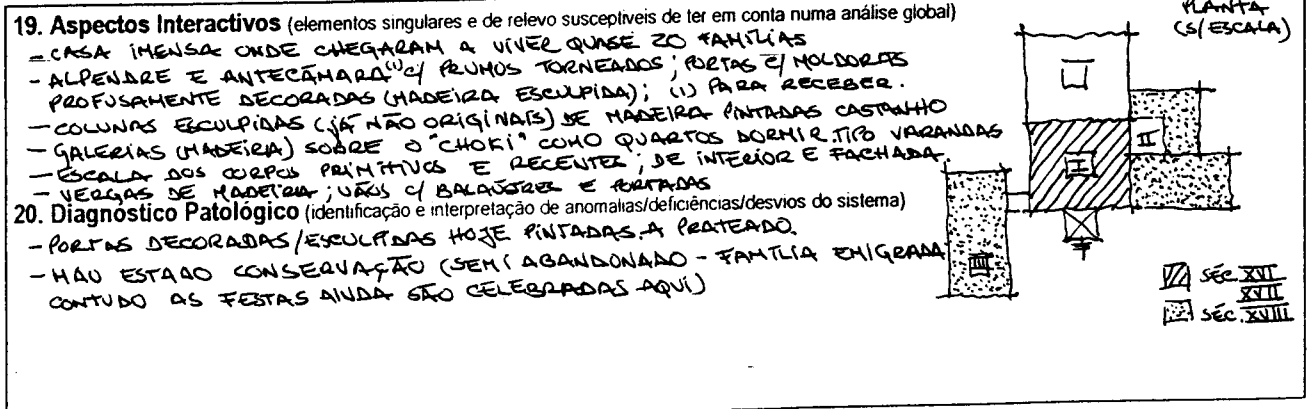 19. Aspectos Interactivos (elementos singulares e de relevo susceptiveis de ter em conta numa análise global)
- CASA IMENSA ONDE CHEGARAM A VIVER QUASE 20 FAMÍLIAS
- ALPENDRE E ANTECÂMARA(1) C/ PRUMOS TORNEADOS; PORTAS C/ MOLDURAS
PROFUSAMENTE DECORADAS (MADEIRA ESCULPIDA); (1) PARA RECEBER.
- COLUNAS ESCULPIDAS (JÁ NÃO ORIGINAIS) DE MADEIRA PINTADAS CASTANHO
- GALERIAS (MADEIRA) SOBRE O "CHOKI" COMO QUARTOS DORMIR TIPO VARANDAS
- ESCALA DOS CORPOS PRIMITIVOS E RECENTES; DE INTERIOR E FACHADA.
- VERGAS DE MADEIRA; VÃOS C/ BALAÚSTRES E PORTADAS
20. Diagnóstico Patológico (identificação e interpretação de anomalias/deficiências/desvios do sistema)
- PORTAS DECORADAS/ESCULPIDAS HOJE PINTADAS A PRATEADO.
- MAU ESTADO CONSERVAÇÃO (SEMI ABANDONADO - FAMÍLIA EMIGRADA
CONTUDO AS FESTAS AINDA SÃO CELEBRADAS AQUI)
PLANTA
(S/ESCALA)
II
I
III
SÉC. XVI
XVII
SÉC. XVIII